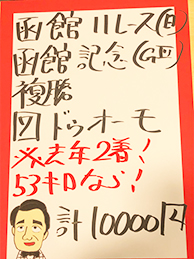 函館 11レース(日)
函館記念(GⅢ)
複勝
図ドゥオーモ
※去年2着!
53キロなら!
計10000円